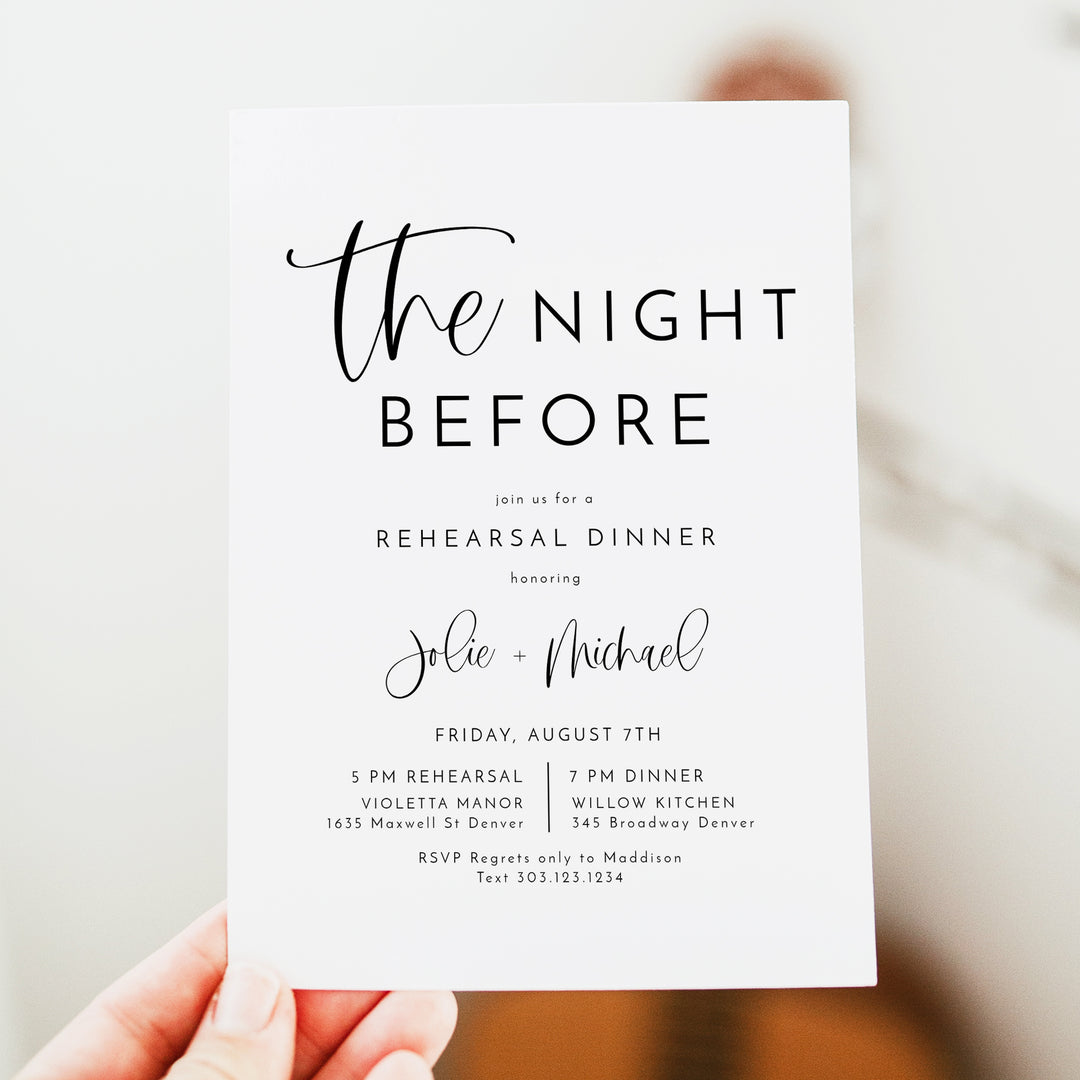 the NIGHT
BEFORE
join us for a
REHEARSAL DINNER
honoring
Jolie + Michael
FRIDAY, AUGUST 7TH
5 PM REHEARSAL
VIOLETTA MANOR
1635 Maxwell St Denver
7 PM DINNER
WILLOW KITCHEN
345 Broadway Denver
RSVP Regrets only to Maddison
Text 303.123.1234